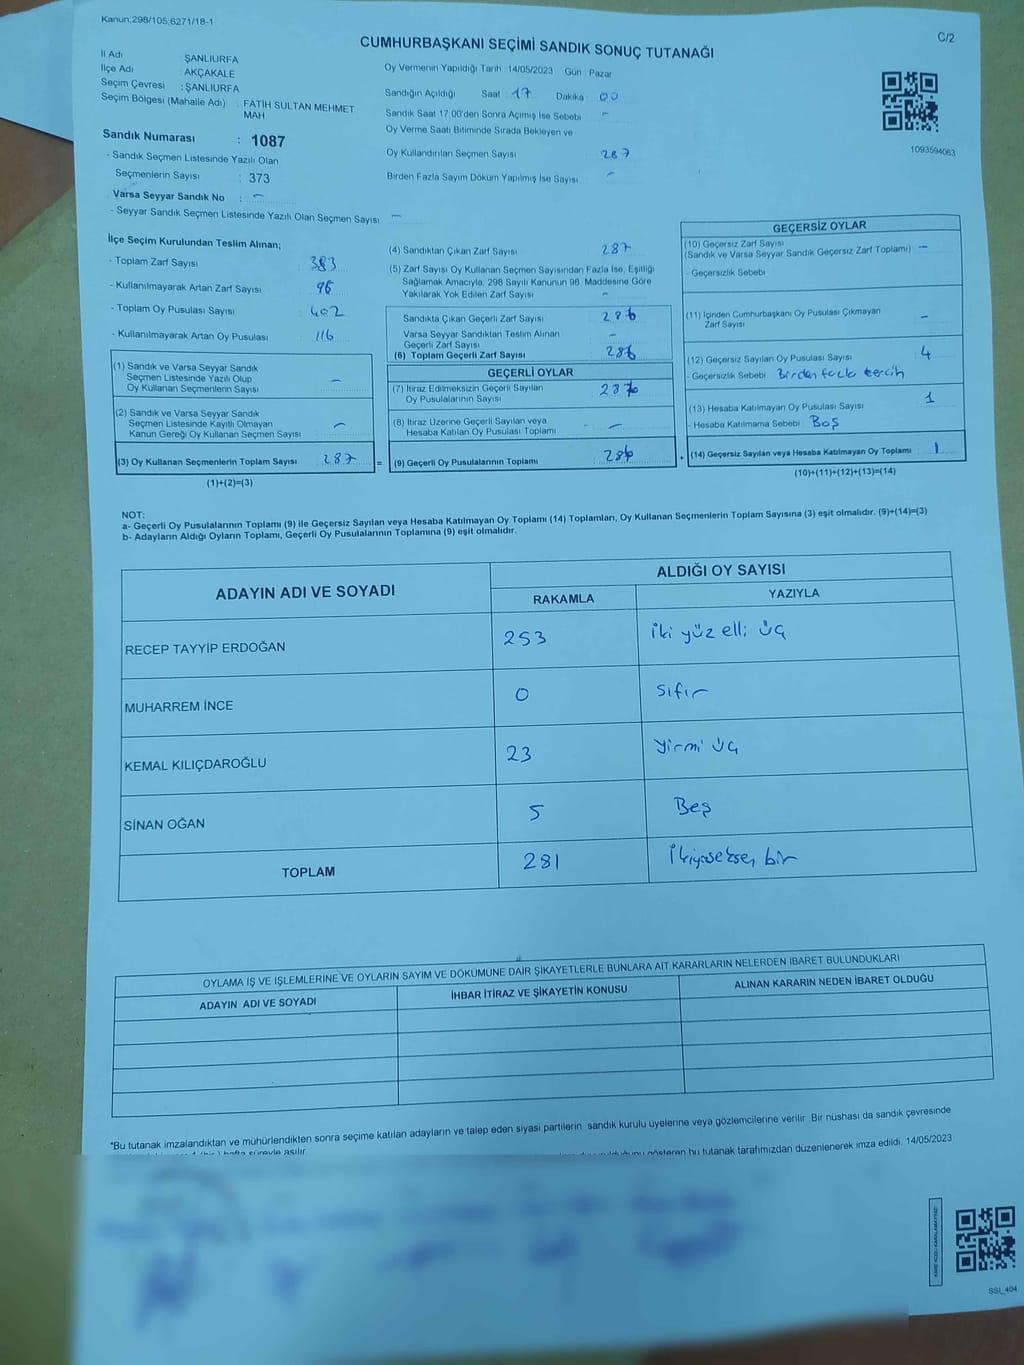 Kanun;298/105,6271/18-1
C/2
CUMHURBAŞKANI SEÇİMİ SANDIK SONUÇ TUTANAĞI
İl Adı : ŞANLIURFA
İlçe Adı : AKÇAKALE
Seçim Çevresi : ŞANLIURFA
Seçim Bölgesi (Mahalle Adı) : FATİH SULTAN MEHMET MAH
Sandık Numarası : 1087
- Sandık Seçmen Listesinde Yazılı Olan
Seçmenlerin Sayısı : 373
Varsa Seyyar Sandık No : -
- Seyyar Sandık Seçmen Listesinde Yazılı Olan Seçmen Sayısı -
Oy Vermenin Yapıldığı Tarih :14/05/2023 Gün : Pazar
Sandığın Açıldığı Saat : 17 Dakika : 00
Sandık Saat 17:00'den Sonra Açımış İse Sebebi -
Oy Verme Saati Bitiminde Sırada Bekleyen ve
Oy Kullandırılan Seçmen Sayısı 287
Birden Fazla Sayım Döküm Yapılmış İse Sayısı -
1093594063
İlçe Seçim Kurulundan Teslim Alınan;
- Toplam Zarf Sayısı : 383
- Kullanılmayarak Artan Zarf Sayısı : 96
- Toplam Oy Pusulası Sayısı : 402
- Kullanılmayarak Artan Oy Pusulası : 116
(1) Sandık ve Varsa Seyyar Sandık
Seçmen Listesinde Yazılı Olup
Oy Kullanan Seçmenlerin Sayısı : -
(2) Sandık ve Varsa Seyyar Sandık
Seçmen Listesinde Kayıtlı Olmayan
Kanun Gereği Oy Kullanan Seçmen Sayısı : -
(3) Oy Kullanan Seçmenlerin Toplam Sayısı : 287 =
(1)+(2)=(3)
(4) Sandıktan Çıkan Zarf Sayısı : 287
(5) Zarf Sayısı Oy Kullanan Seçmen Sayısından Fazla İse, Eşitliği
Sağlamak Amacıyla; 298 Sayılı Kanunun 98. Maddesine Göre
Yakılarak Yok Edilen Zarf Sayısı : -
Sandıkta Çıkan Geçerli Zarf Sayısı : 286
Varsa Seyyar Sandıktan Teslim Alınan
Geçerli Zarf Sayısı : -
(6) Toplam Geçerli Zarf Sayısı : 286
GEÇERLİ OYLAR
(7) İtiraz Edilmeksizin Geçerli Sayılan
Oy Pusulalarının Sayısı :
(8) İtiraz Üzerine Geçerli Sayılan veya
Hesaba Katılan Oy Pusulası Toplamı : -
(9) Geçerli Oy Pusulalarının Toplamı : 286 +
GEÇERSİZ OYLAR
(10) Geçersiz Zarf Sayısı
(Sandık ve Varsa Seyyar Sandık Geçersiz Zarf Toplamı) -
- Geçersizlik Sebebi
(11) İçinden Cumhurbaşkanı Oy Pusulası Çıkmayan
Zarf Sayısı -
(12) Geçersiz Sayılan Oy Pusulası Sayısı 4
- Geçersizlik Sebebi Birden fazla tercih
(13) Hesaba Katılmayan Oy Pusulası Sayısı 1
- Hesaba Katılmama Sebebi Boş
(14) Geçersiz Sayılan veya Hesaba Katılmayan Oy Toplamı 1
(10)+(11)+(12)+(13)=(14)
NOT:
a- Geçerli Oy Pusulalarının Toplamı (9) ile Geçersiz Sayılan veya Hesaba Katılmayan Oy Toplamı (14) Toplamları, Oy Kullanan Seçmenlerin Toplam Sayısına (3) eşit olmalıdır. (9)+(14)=(3)
b- Adayların Aldığı Oyların Toplamı, Geçerli Oy Pusulalarının Toplamına (9) eşit olmalıdır.
ADAYIN ADI VE SOYADI
ALDIĞI OY SAYISI
RAKAMLA YAZIYLA
RECEP TAYYİP ERDOĞAN 253 iki yüz elli üç
MUHARREM İNCE 0 sıfır
KEMAL KILIÇDAROĞLU 23 yirmi üç
SİNAN OĞAN 5 Beş
TOPLAM 281 ikiyüseksen bir
OYLAMA İŞ VE İŞLEMLERİNE VE OYLARIN SAYIM VE DÖKÜMÜNE DAİR ŞİKAYETLERLE BUNLARA AİT KARARLARIN NELERDEN İBARET BULUNDUKLARI
ADAYIN ADI VE SOYADI İHBAR İTİRAZ VE ŞİKAYETİN KONUSU ALINAN KARARIN NEDEN İBARET OLDUĞU
*Bu tutanak imzalandıktan ve mühürlendikten sonra seçime katılan adayların ve talep eden siyasi partilerin sandık kurulu üyelerine veya gözlemcilerine verilir. Bir nüshası da sandık çevresinde
1 (bir) hafta süreyle asılır
gösteren bu tutanak tarafımızdan düzenlenerek imza edildi. 14/05/2023
SSI_404